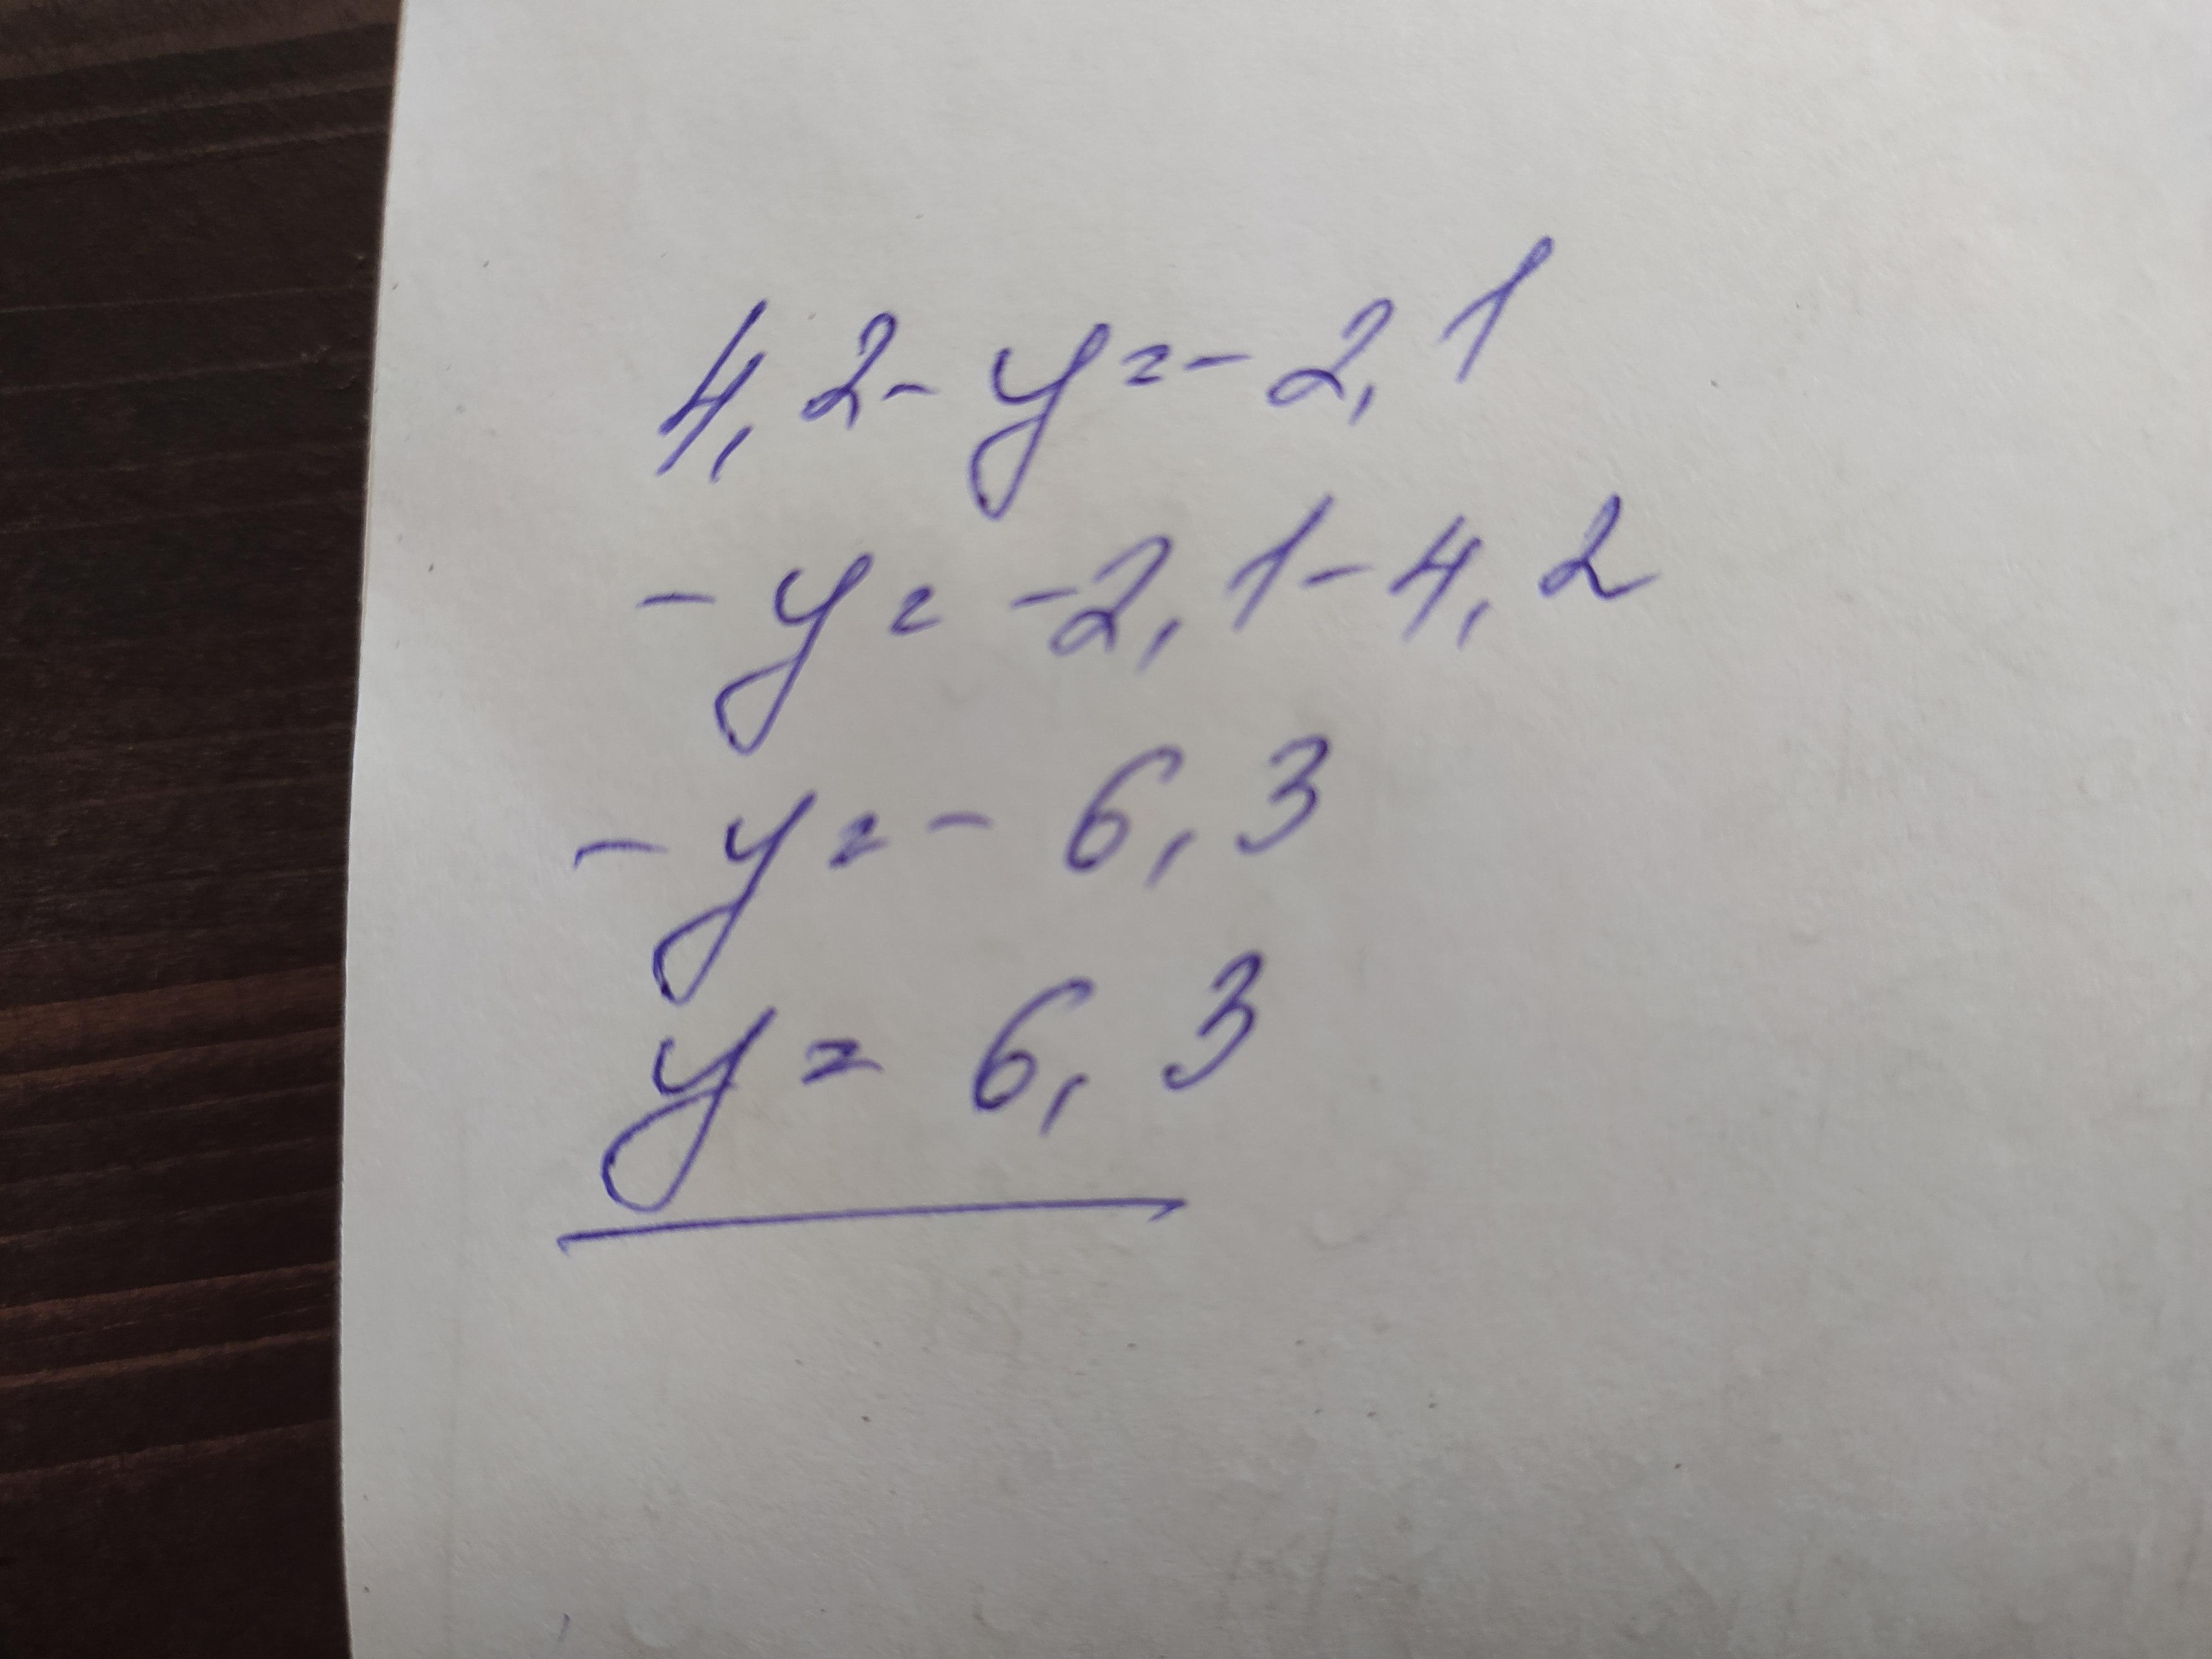 4,2-y=-2,1
-y=-2,1-4,2
-y=-6,3
y=6,3